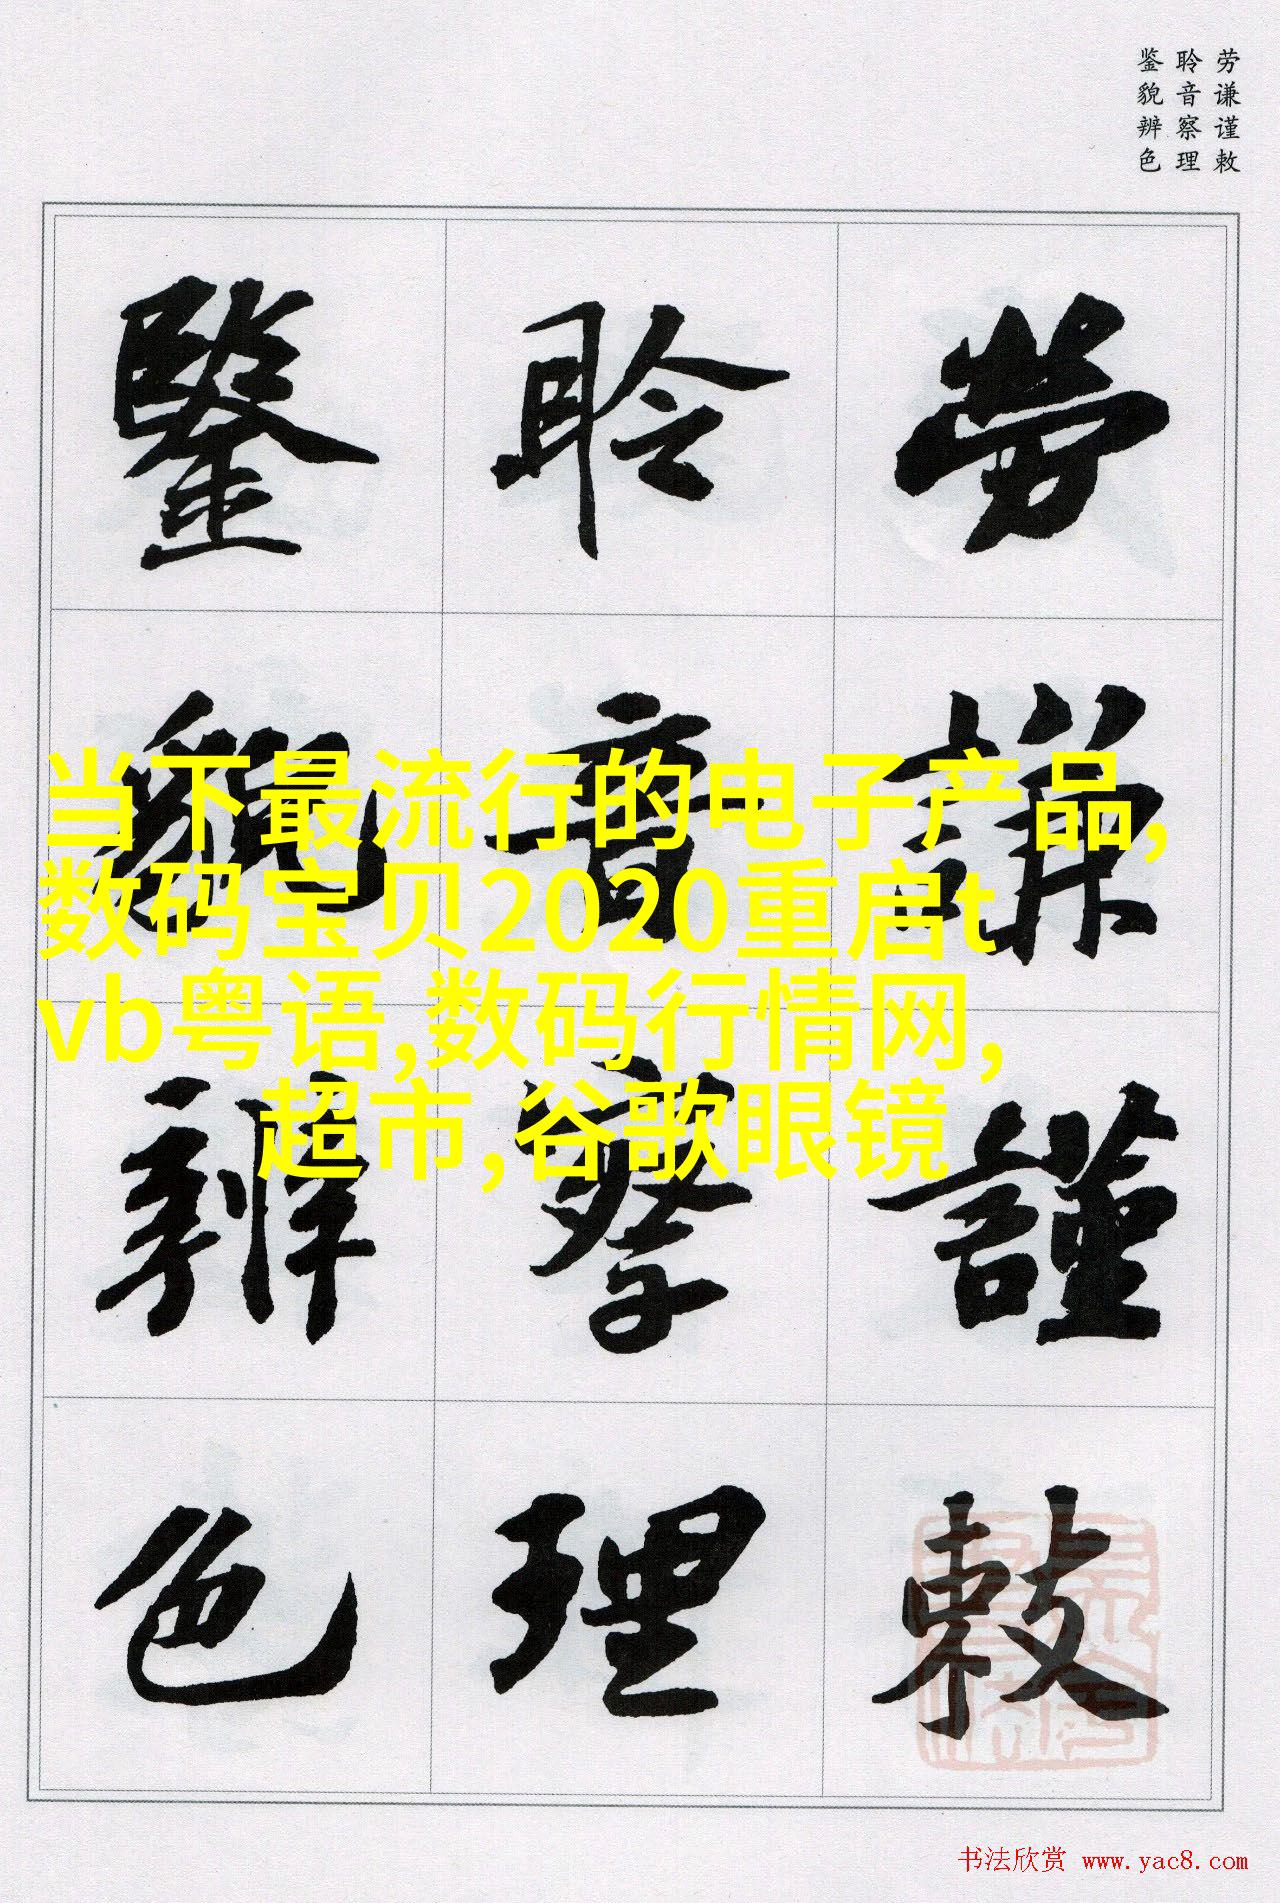 劳谦谨敕
聆音察理
鉴貌辨色
勞謙謹敕
聆音察理
鑒貌辨色
当下最流行的电子产品,
数码宝贝2020重启t
vb粤语,数码行情网,
超市,谷歌眼镜
书法欣赏 www.yac8.com